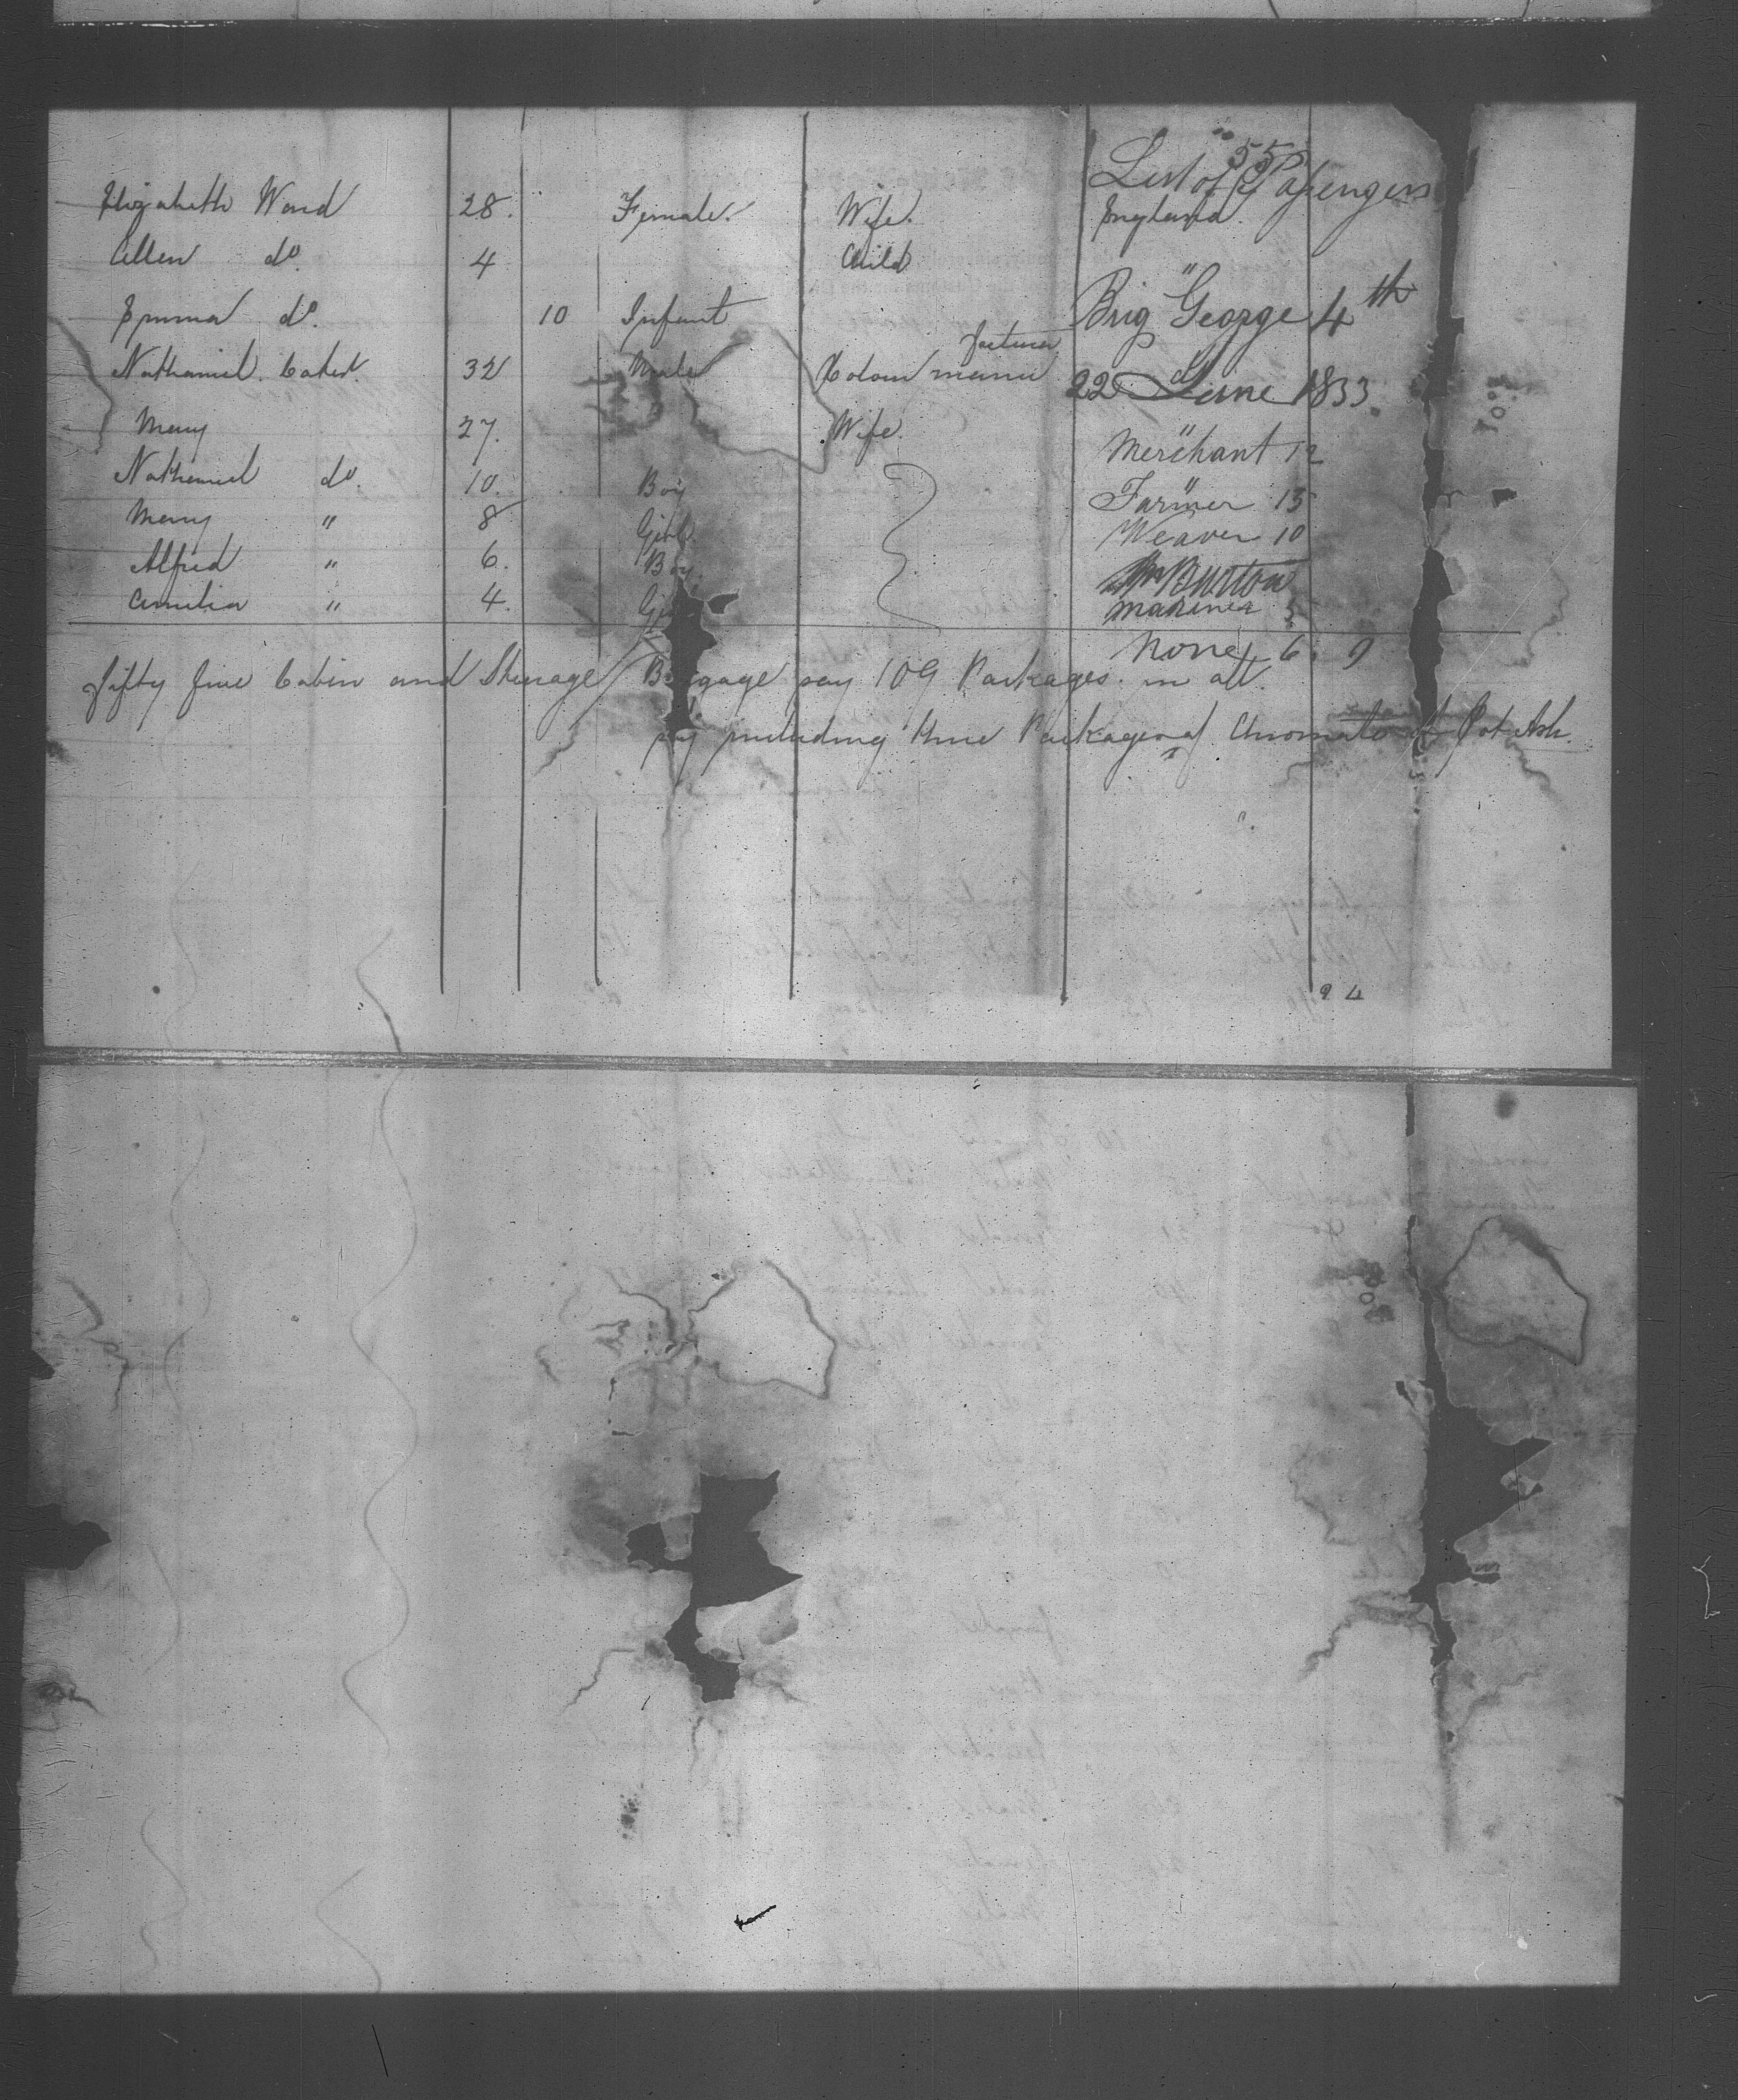 List of 55 Passengers
Elizabeth Ward 28. Female. Wife. England.
Ellen do. 4 Child
Emma do. 10 Infant
Brig "George 4th
facturer
Nathaniel 32 Male Colour manu
22d June 1833.
Mary 27. Wife.
Merchant 12
Nathaniel do. 10. Boy
Farmer 13
Mary " 8 Girl
Weaver 10
Alfred " 6. Boy.
Burton
Amelia " 4.
Mariner
None 6. 9
fifty five Cabin and Steerage Baggage say 109 Packages in all.
say including three Packages of Chromate of Pot Ash.
94